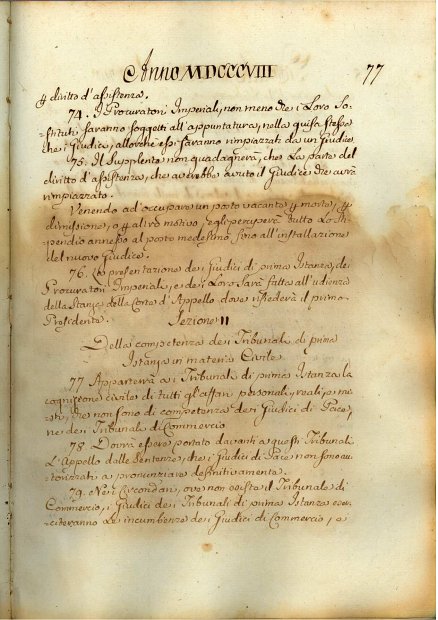 Anno MDCCCVIII 77
diritto d'assistenza.
74. I Procuratori Imperiali, non meno che i Loro So-
stituti saranno soggetti all'appuntatura, nella guisa stessa
che i Giudici, allorché essi saranno rimpiazzati da un Giudice
75. Il Supplente non guadagnerà, che La parte del
diritto d'assistenza, che avrebbe avuto il Giudice che avrà
rimpiazzato.
Venendo ad occupare un posto vacante morte,
dimissione, o altro motivo egli percuperà tutto Lo sti-
pendio annesso al posto medesimo fino all'installazione
del nuovo Giudice.
76. La presentazione dei Giudici di prima Istanza, dei
Procuratori Imperiali, e dei Loro sarà fatta all'udienza
della Stanza della Corte d'Appello, dove risiederà il primo
Presidente.
Sezione II
Della competenza dei Tribunali di prima
Istanza in materia Civile
77 Apparterrà ai Tribunali di prima Istanza la
cognizione civile di tutti gl'affari personali, reali, e mi-
sti, che non sono di competenza dei Giudici di Pace,
nè dei Tribunali di Commercio
78. Dovrà essere portato davanti a questi Tribunali
L'Appello dalle Sentenze, che i Giudici di Pace non sono au-
torizzati a pronunziare definitivamente.
79. Nei Circondari, ove non esista il Tribunale di
Commercio, i Giudici dei Tribunali di prima Istanza eser-
citeranno Le incumbenze dei Giudici di Commercio, e